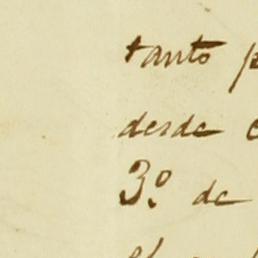 tanto
desde
3.º de